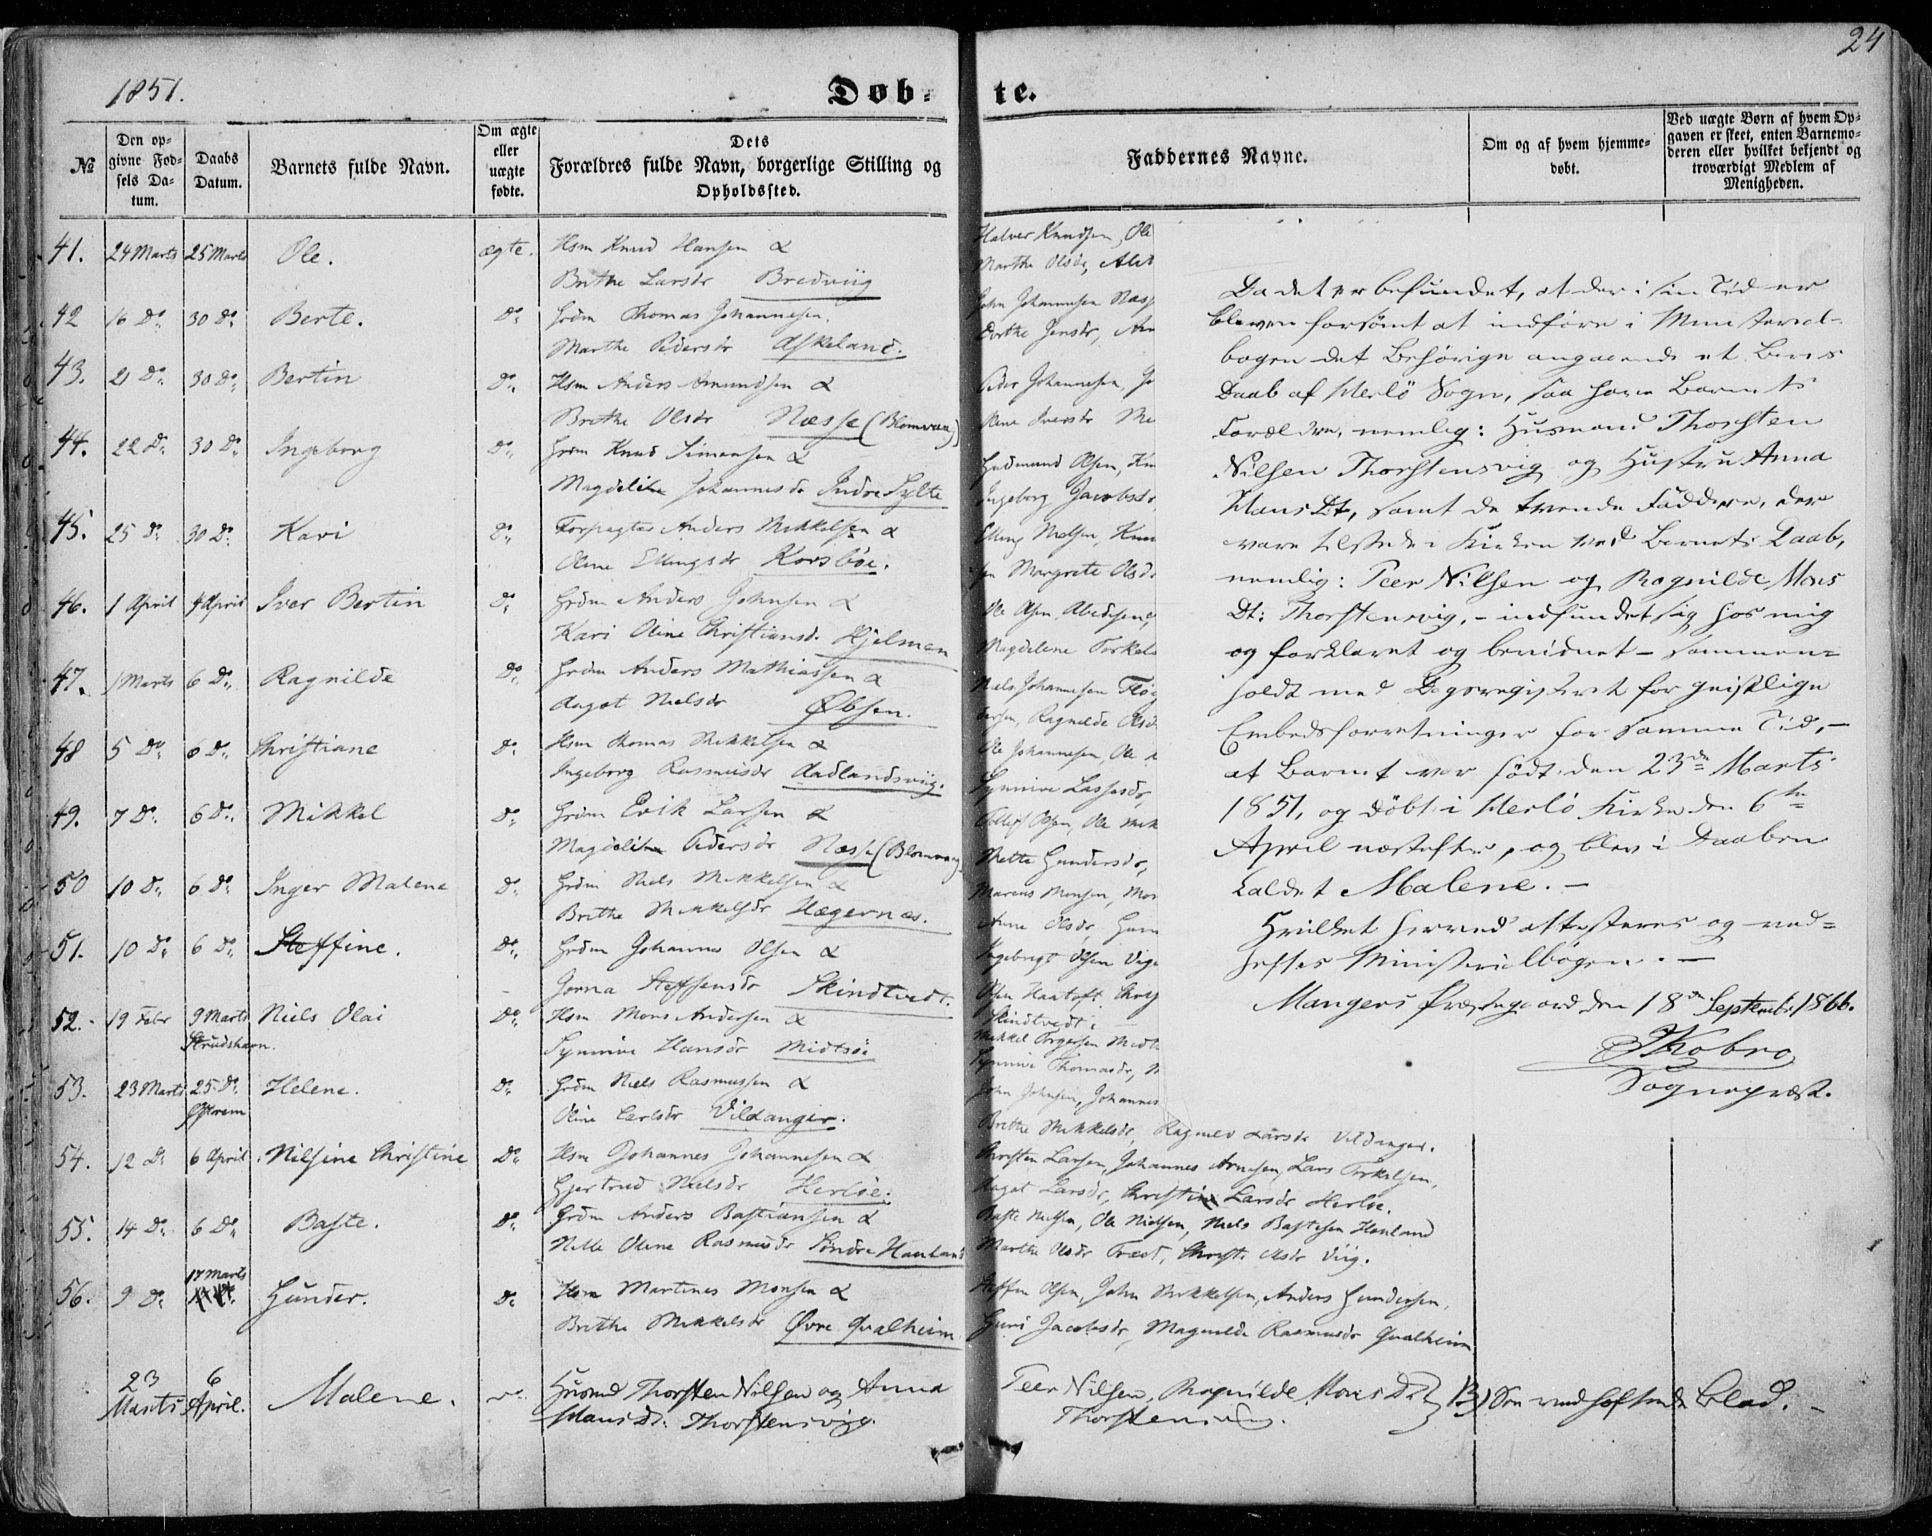 24
1851.
Døb- te.
№
Den opgivne Fødsels Datum.
Daabs Datum.
Barnets fulde Navn.
Om ægte eller uægte fødte.
Dets Forældres fulde Navn, borgerlige Stilling og Opholdssted.
Faddernes Navne.
Om og af hvem hjemmedøbt.
Ved uægte Børn af hvem Opgaven er skeet, enten Barnemoderen eller hvilket bekjendt og troværdigt Medlem af Menigheden.
41. 24 Marts 25 Marts Ole. ægte. Hsm Knud Hansen &
Brithe Larsdr Bredviig
Halver Knudsen, Ole
Marthe Olsdr,
42 16 Do 30 Do Berte. Do Grdm Thomas Johannesen.
Marthe Pedersdr Askeland.
John Johannesen Næss
Dorthe Jensdr, An
43. 21 Do 30 Do Bertin Do Hsm Anders Amundsen &
Brethe Olsdr Næsse (Blomvaag)
Peder Johannesen, Jo
Oline Iversdr Me
44. 22 Do 30 Do Ingeborg Do Grdm Knud Simensen &
Magdeline Johannesdr Indre Sylte
Gudmund Olsen, Kn
Ingeborg Jacobsdr
45. 25 Do 30 Do Kari Do Forpagter Anders Mikkelsen &
Oline Ellingsdr Korsbøe.
Elling Nielsen, Knu
Margrete Olsdr
46. 1 April 4 April Iver Bertin Do Grdm Anders Johnsen &
Kari Oline Christiansdr Hjelmen
Ole Olsen
Magdelene Torkels
47. 1 Marts 6 Do Ragnilde Do Grdm Anders Mathiassen &
Aagot Nielsdr Øbsen.
Niels Johannesen Fløg
Ragnilde Olsdr
48 5 Do 6 Do Christiane Do Hsm Thomas Mikkelsen &
Ingeborg Rasmusdr Aadlandsviig.
Ole Johannesen, Ole
Synnive Lassesdr,
49. 7 Do 6 Do Mikkel Do Grdm Erik Larsen &
Magdeline Pedersdr Næsse (Blomvaag)
Olsen, Ole Mik
Mette Gundersdr,
50 10 Do 6 Do Inger Malene Do Grdm Niels Mikkelsen &
Brithe Mikkelsdr Hægernæs.
Marcus Monsen, Mon
Anne Olsdr, Gun
51. 10 Do 6 Do Steffine. Do Grdm Johannes Olsen &
Gorna Steffensdr Skindtvedt.
Ingebrigt Olsen Vige
Olsen Haatoft
Skindtvedt.
52. 19 Febr 9 Marts Niels Olai Do Hsm Mons Andersen &
Strudshavn. Synnive Hansdr Midtsøe
Mikkel Torgersen Midt
Synnive Thomasdr,
53. 23 Marts 25 Do Helene. Do Grdm Niels Rasmussen &
Oline Carlsdr Vildanger.
John Johnsen, Johannes
Brithe Mikkelsdr, Ragnild Larsdr Vildanger.
54. 12 Do 6 April Nilsine Christine Do Hsm Johannes Johannesen &
Gjertrud Nielsdr Herløe.
Thorsten Larsen, Johannes Arnesen, Lars Torkelsen,
Aagot Larsdr, Christine Larsdr Herløe.
55. 14 Do 6 Do Baste. Do Grdm Anders Bastiansen &
Nille Oline Rasmusdr Søndre Hanland
Baste Nielsen, Ole Nielsen, Niels Bastesen Hanland
Marthe Olsdr Træet, Christi Olsdr Viig.
56. 9 Do 17 Marts Gunder. Do Hsm Martines Monsen &
Brithe Mikkelsdr Øvre Qvalheim
Steffen Olsen, John Mikkelsen, Anders Gundersen,
Guri Jacobsdr, Magnilde Rasmusdr Qvalheim
23 Marts 6 April. Malene. Husmd Thorsten Nilsen og Anna
Hans Dt. Thorstensvig.
Peer Nilsen, Ragnilde Mons Dt
Thorstensvig.
See vedheftende Blad.
Da det er befundet, at der i sin Tid er
bleven forsømt at indføre i Ministerial-
bogen det Behørige angaaende et Barns
Daab af Herlø Sogn, saa have Barnets
Forældre, nemlig: Husmand Thorsten
Nilsen Thorstensvig og Hustru Anna
Hans Dt, samt de tvende Faddere, der
vare tilstede i Kirken ved Barnets Daab,
nemlig: Peer Nilsen og Ragnilde Mons
Dt: Thorstensvig, - indfundet sig hos mig
og forklaret og bevidnet - sammen-
holdt med Dagsregisteret for geistlige
Embedsforretninger for samme Tid, -
at Barnet var født den 23de Marts
1851, og døbt i Herlø Kirke den 6te
April næstefter, og blev i Daaben
kaldet Malene. -
Hvilket herved attesteres og ved-
heftes Ministerialbogen. -
Mangers Præstegaard den 18de Septembr 1866.
Kobro
Sognepræst.